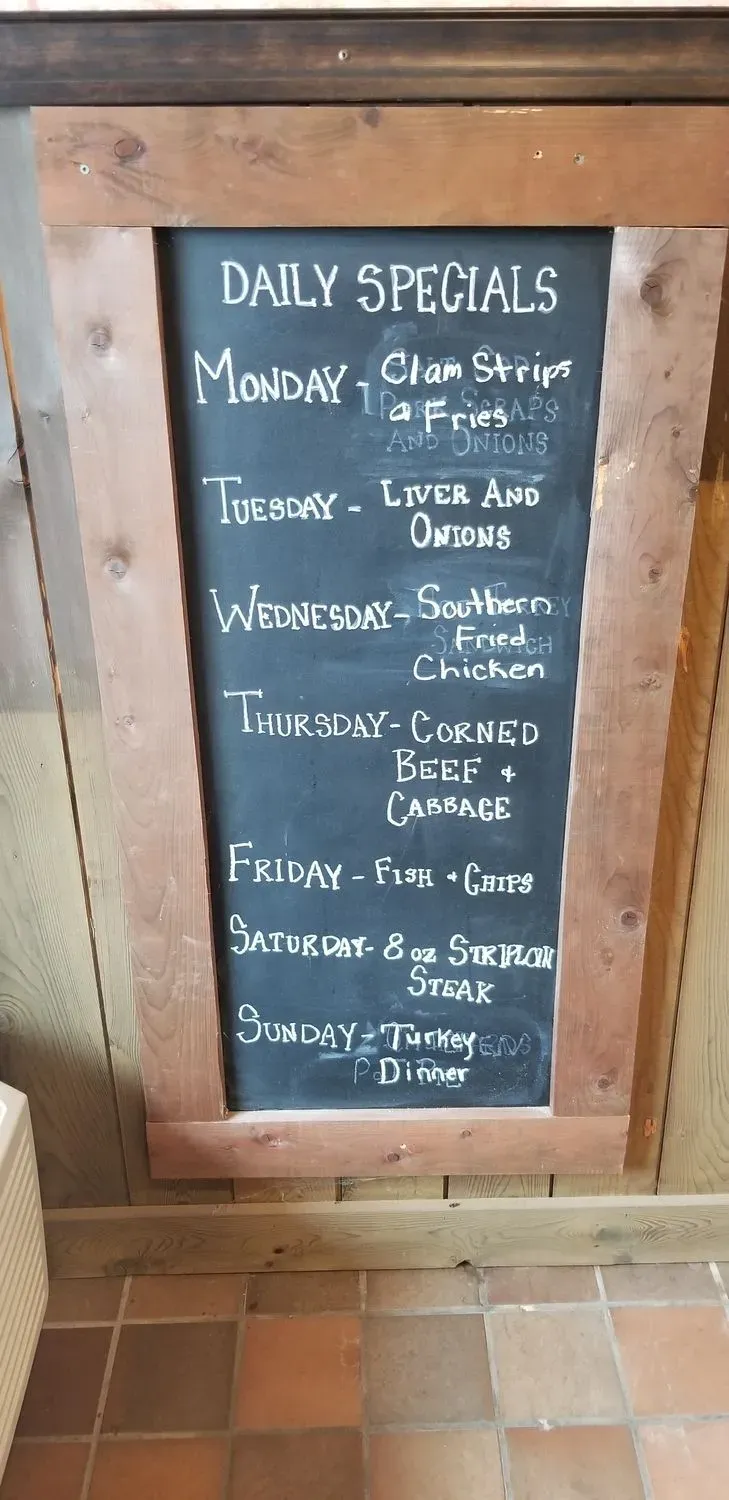 DAILY SPECIALS
MONDAY - Clam Strips
& Fries
PORK SCRAPS
AND ONIONS
TUESDAY - LIVER AND
ONIONS
WEDNESDAY - Southern
Fried
SANDWICH
Chicken
THURSDAY - CORNED
BEEF +
CABBAGE
FRIDAY - FISH + CHIPS
SATURDAY - 8 oz STRIPLOIN
STEAK
SUNDAY - Turkey
Dinner